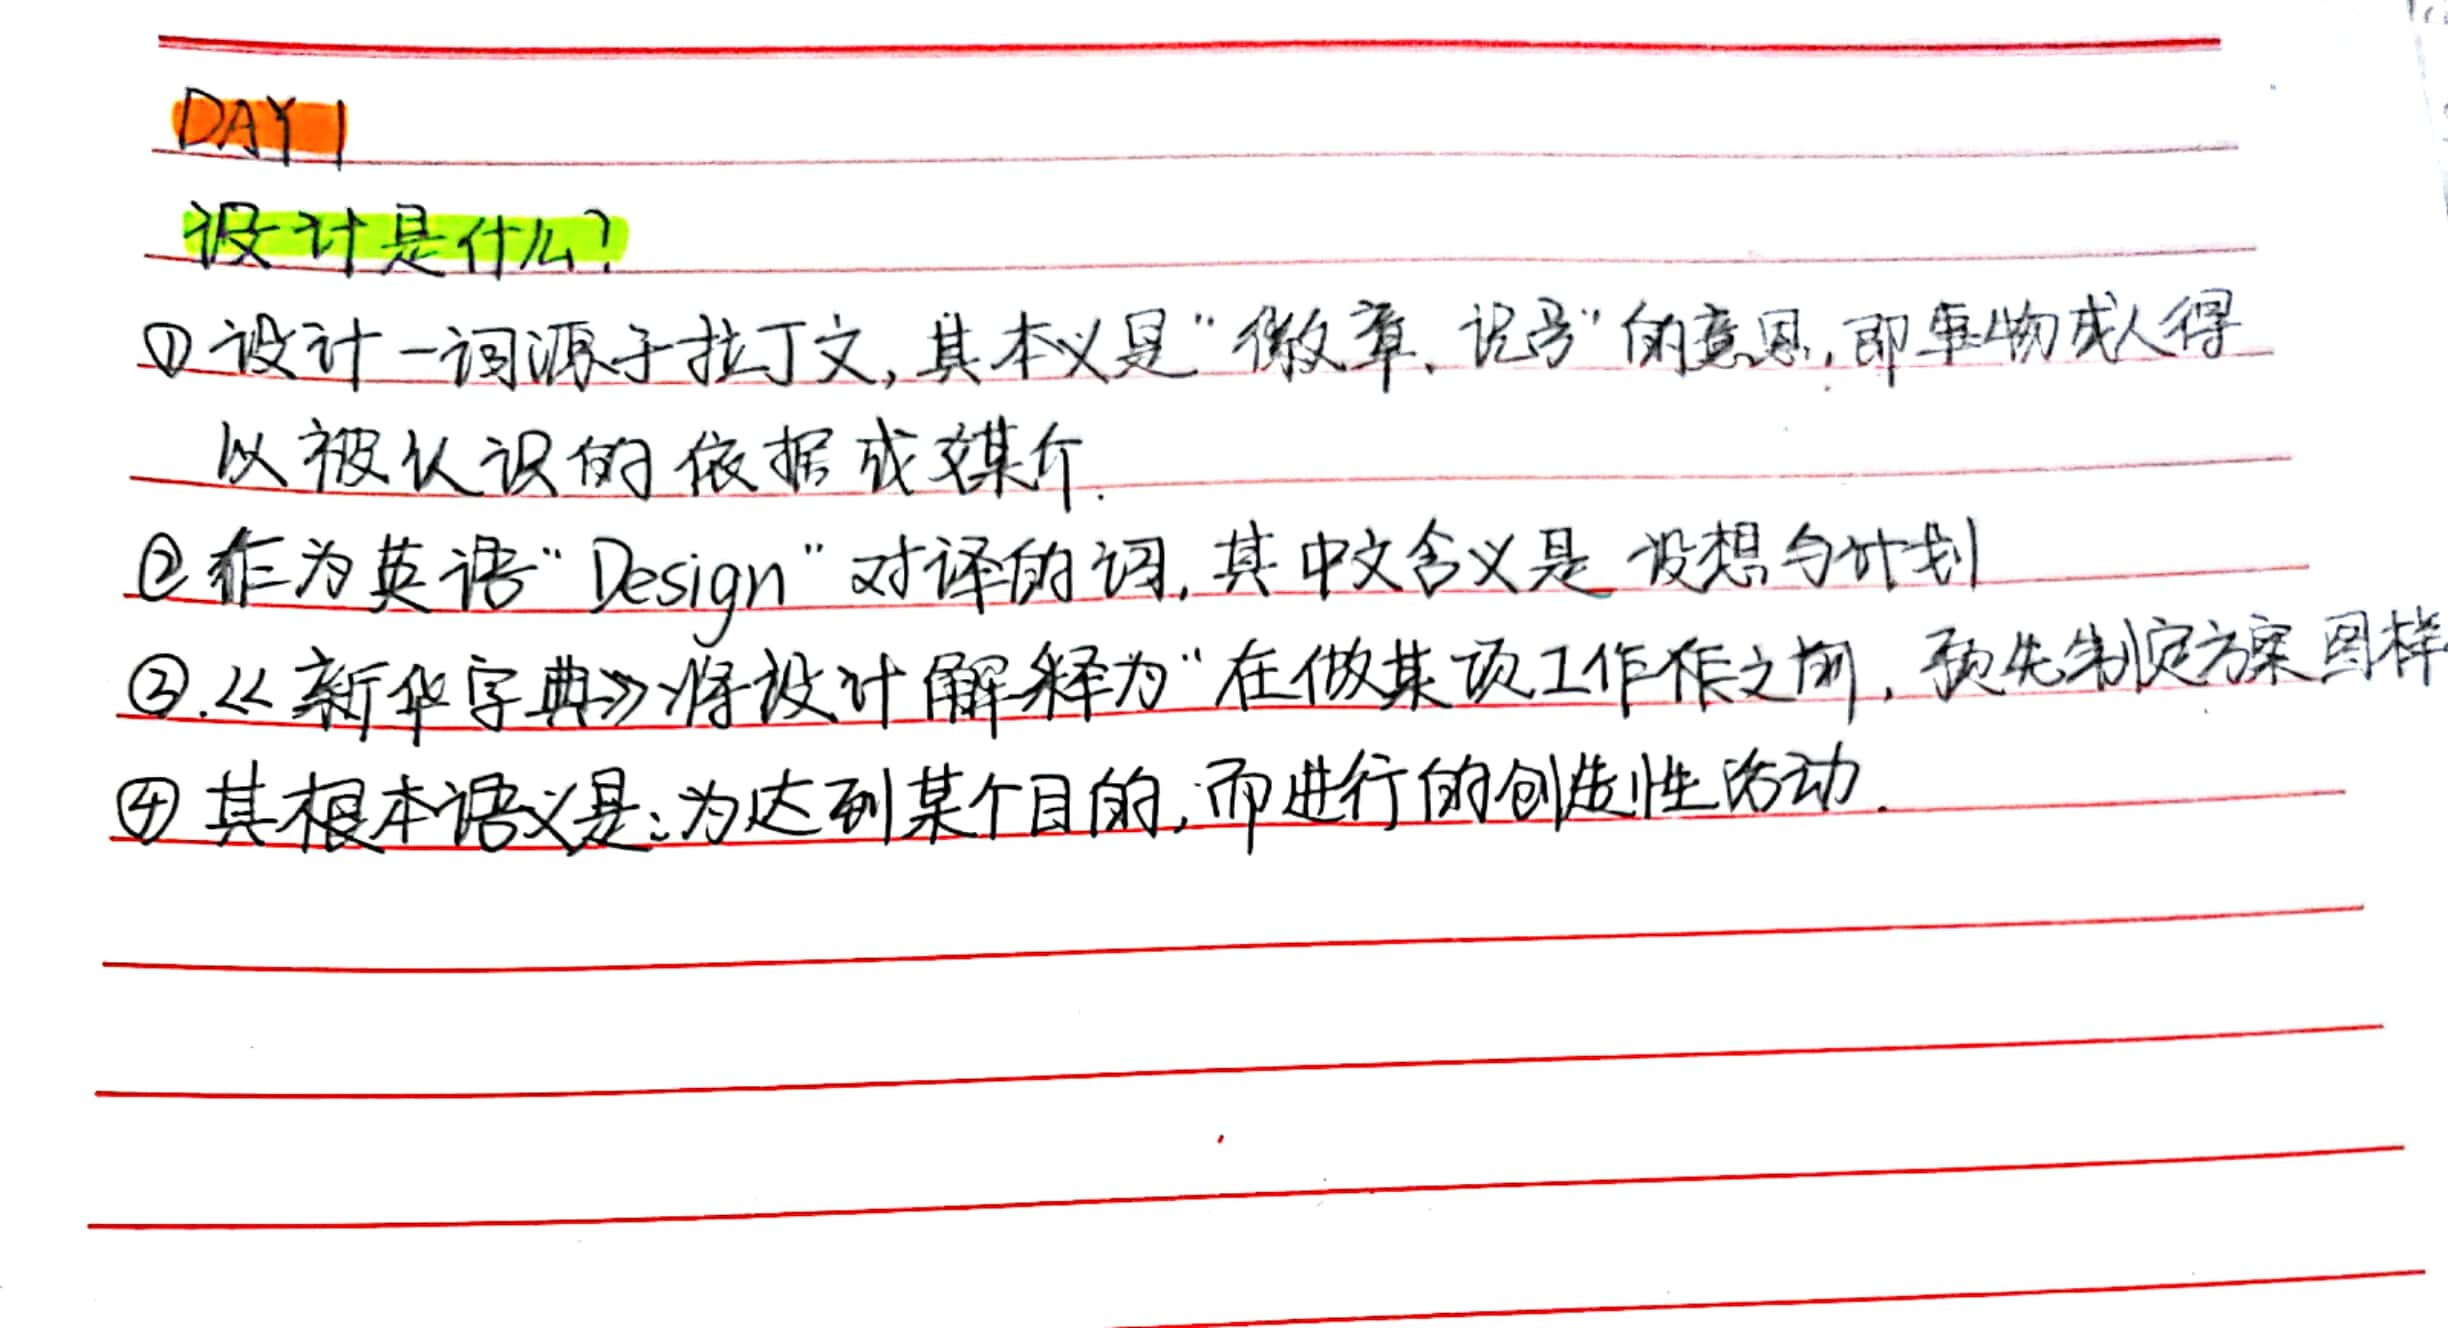 DAY 1
设计是什么?
①设计一词源于拉丁文,其本义是“徽章、记号”的意思,即事物或人得
以被认识的依据或媒介.
②作为英语“Design”对译的词,其中文含义是设想与计划
③.《新华字典》将设计解释为“在做某项工作作之前,预先制定方案图样
④其根本语义是:为达到某个目的,而进行的创造性活动.